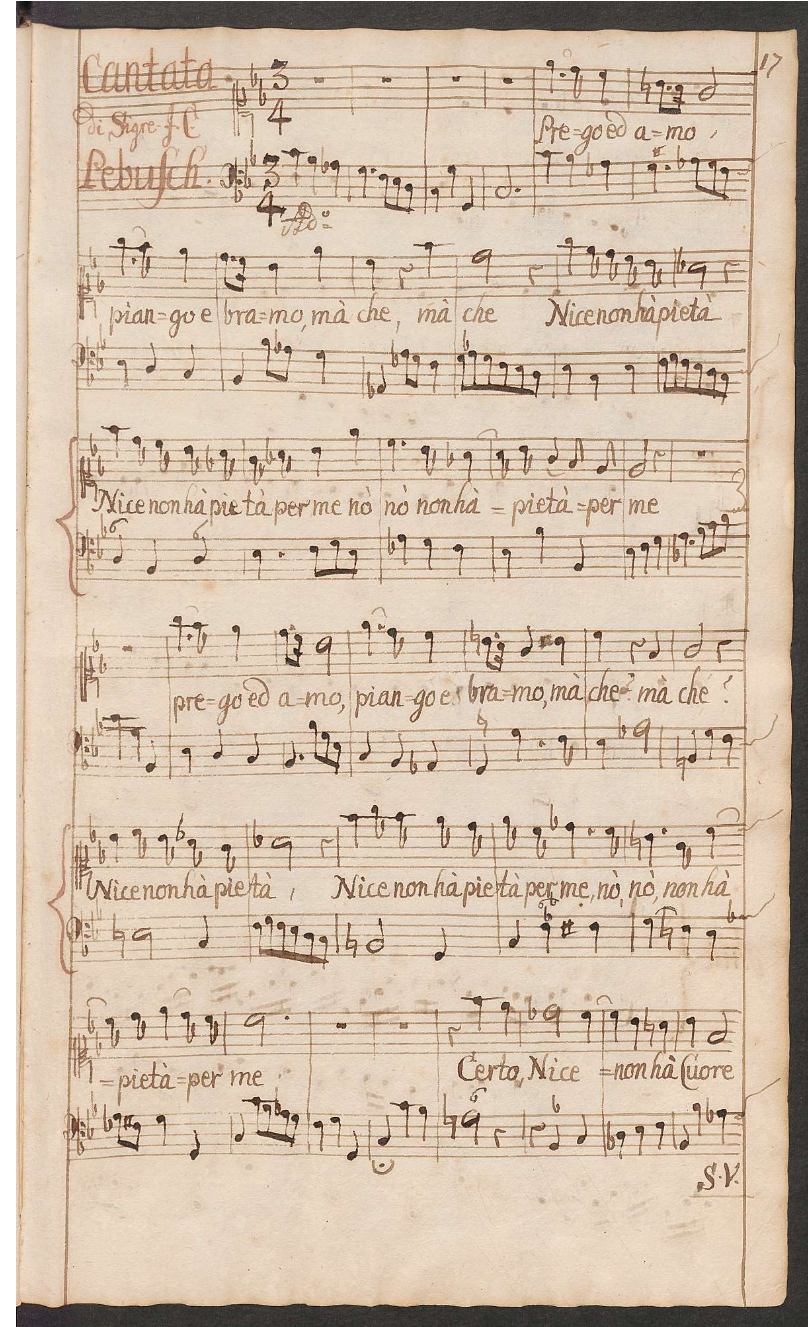 Cantata
17
di Sigre J. C
Pebusch.
3
4
Pre=go ed a=mo,
3
4
Ado:
pian=go e bra=mo, mà che, mà che Nice non hà pietà
Nice non hà pietà per me nò nò non hà = pietà =per me
6 6
pre=go ed a=mo, pian=go e bra=mo, mà che? mà ché?
Nice non hà pietà, Nice non hà pietà per me, nò, nò, non hà
=pietà =per me Certo, Nice =non hà Cuore
6
S.V.